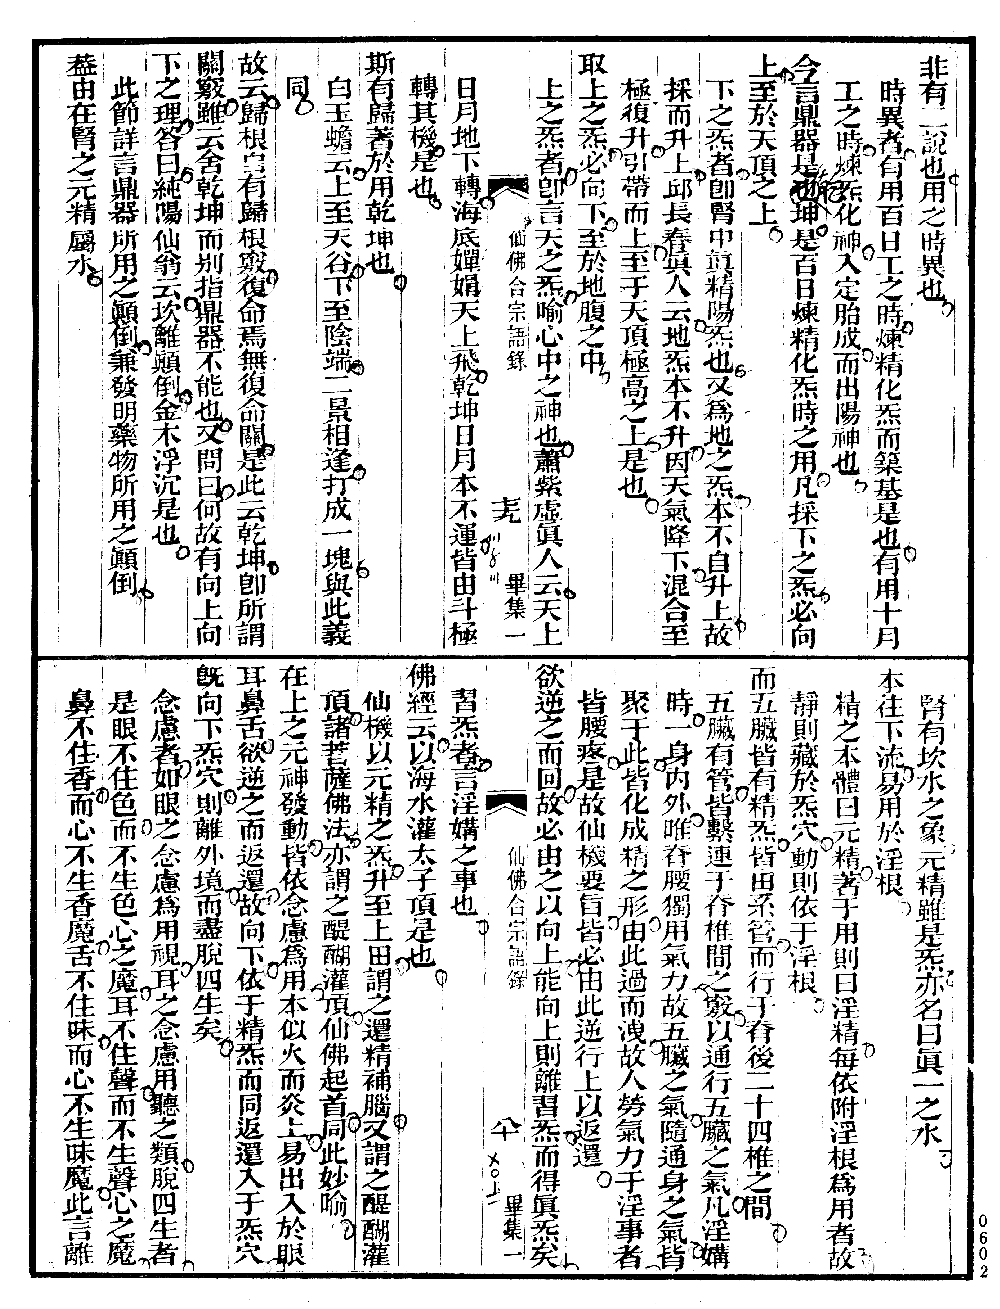 非有二說也用之時異也
時異者有用百日工之時煉精化炁而築基是也有用十月
工之時煉炁化神入定胎成而出陽神也
今言鼎器是乾坤是百日煉精化炁時之用凡採下之炁必向
上至於天頂之上
下之炁者卽腎中氣精陽炁也又爲地之炁本不自升上故
採而升上邱長春眞人云地炁本不升因天氣降下混合至
極復升引帶而上至于天頂極高之上是也
取上之炁必向下至於地腹之中
上之炁者卽言天之炁喻心中之神也蕭紫虛眞人云天上
仙佛合宗語錄
畢集一
日月地下轉海底嬋娟天上飛乾坤日月本不運皆由斗極
轉其機是也
斯有歸著於用乾坤也
白玉蟾云上至天谷下至陰端二景相逢打成一塊與此義
同
故云歸根自有歸根竅復命焉無復命關是此云乾坤卽所謂
關竅雖云舍乾坤而別指鼎器不能也又問曰何故有向上向
下之理答曰純陽仙翁云坎離顚倒金木浮沉是也
此節詳言鼎器所用之顚倒兼發明藥物所用之顚倒
葢由在腎之元精屬水
腎有坎水之象元精雖是炁亦名曰眞一之水
本往下流易用於淫根
精之本體曰元精著于用則曰淫精每依附淫根爲用者故
靜則藏於炁穴動則依于淫根
而五臟皆有精炁皆由系管而行于脊後二十四椎之間
五臟有管皆繫連于脊椎間之竅以通行五臟之氣凡淫媾
時一身内外唯脊腰獨用氣力故五臟之氣隨通身之氣皆
聚于此皆化成精之形由此過而洩故人勞氣力于淫事者
皆腰疼是故仙機要旨皆必由此逆行上以返還
欲逆之而回故必由之以向上能向上則離習炁而得眞炁矣
仙佛合宗語錄
畢集一
習炁者言淫媾之事也
佛經云以海水灌太子頂是也
仙機以元精之炁升至上田謂之還精補腦又謂之醍醐灌
頂諸菩薩佛法亦謂之醍醐灌頂仙佛起首同此妙喻
在上之元神發動皆依念慮爲用本似火而炎上易出入於眼
耳鼻舌欲逆之而返還故向下依于精炁而同返還入于炁穴
旣向下炁穴則離外境而盡脫四生矣
念慮者如眼之念慮爲用視耳之念慮用聽之類脫四生者
是眼不住色而不生色心之魔耳不住聲而不生聲心之魔
鼻不住香而心不生香魔舌不住味而心不生味魔此言離
0602